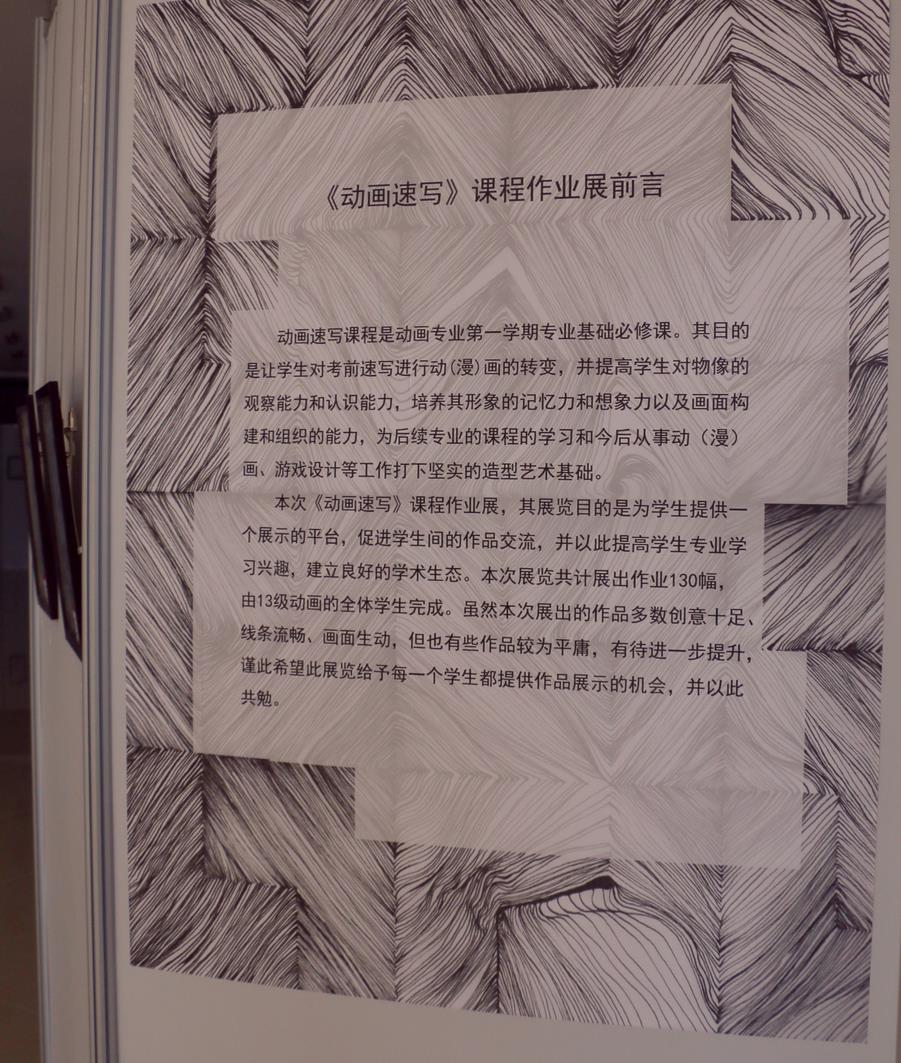 《动画速写》课程作业展前言
动画速写课程是动画专业第一学期专业基础必修课。其目的
是让学生对考前速写进行动(漫)画的转变，并提高学生对物像的
观察能力和认识能力，培养其形象的记忆力和想象力以及画面构
建和组织的能力，为后续专业的课程的学习和今后从事动（漫）
画、游戏设计等工作打下坚实的造型艺术基础。
本次《动画速写》课程作业展，其展览目的是为学生提供一
个展示的平台，促进学生间的作品交流，并以此提高学生专业学
习兴趣，建立良好的学术生态。本次展览共计展出作业130幅，
由13级动画的全体学生完成。虽然本次展出的作品多数创意十足、
线条流畅、画面生动，但也有些作品较为平庸，有待进一步提升，
谨此希望此展览给予每一个学生都提供作品展示的机会，并以此
共勉。